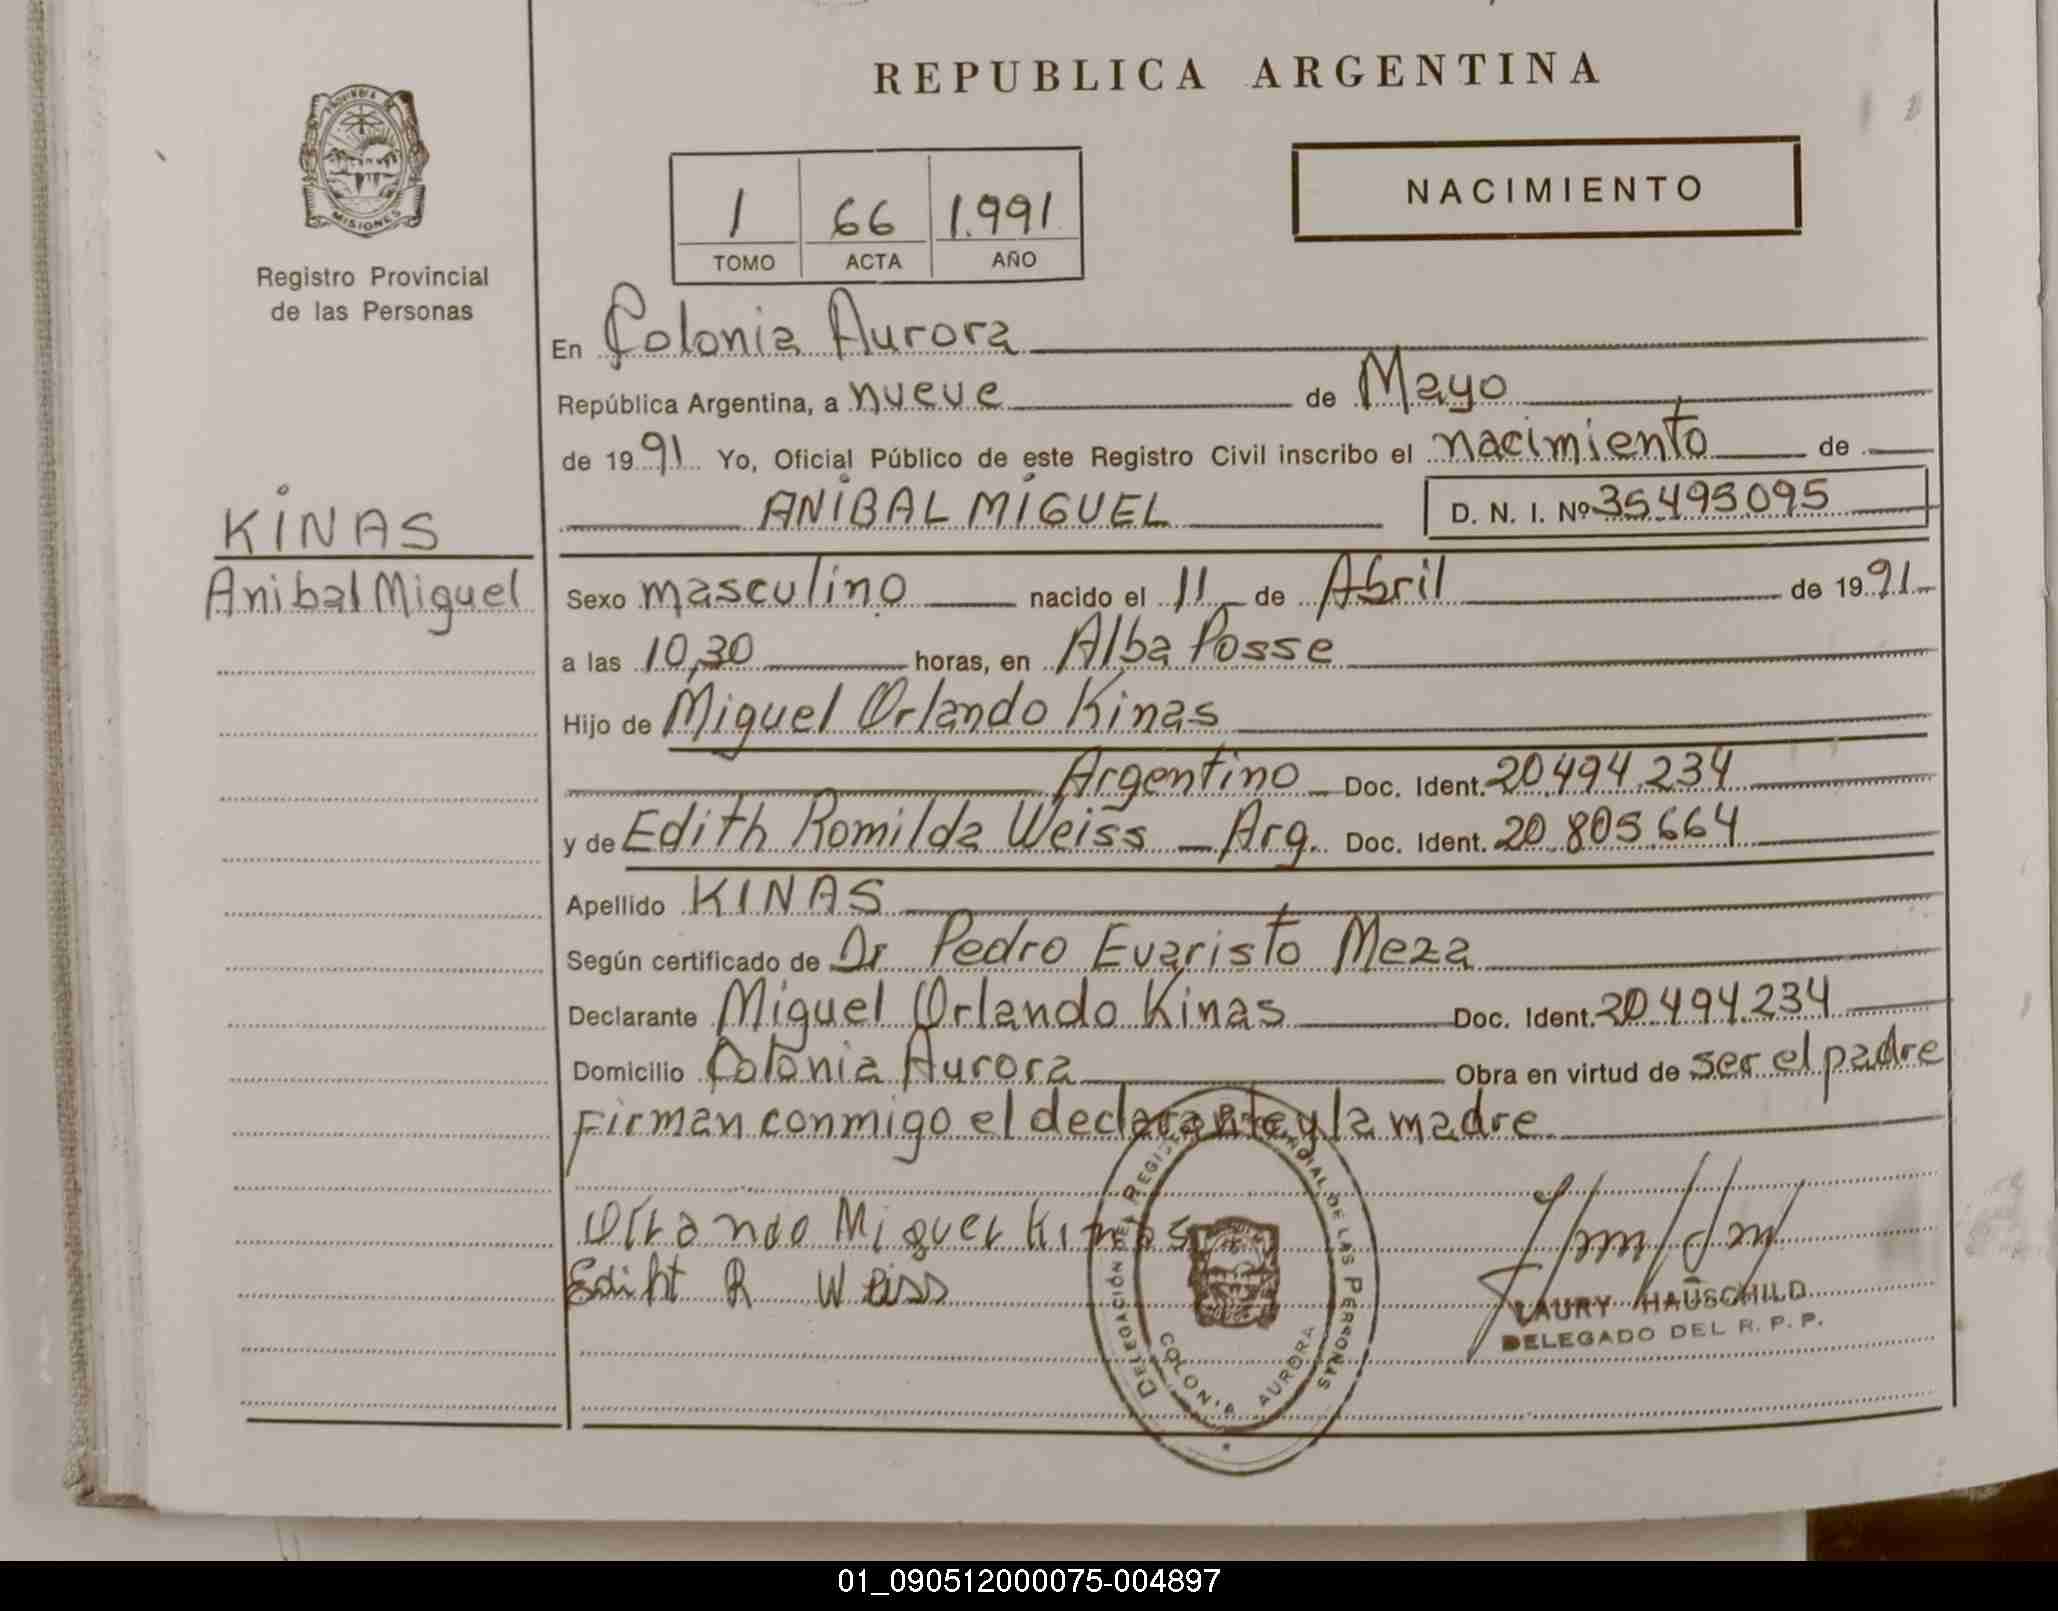 REPUBLICA ARGENTINA
PROVINCIA DE
MISIONES
Registro Provincial
de las Personas
1 66 1.991
TOMO ACTA AÑO
NACIMIENTO
En Colonia Aurora
República Argentina, a nueve de Mayo
de 1991 Yo, Oficial Público de este Registro Civil inscribo el nacimiento de
ANIBAL MIGUEL D. N. I. Nº 35.495.095
KINAS
Anibal Miguel
Sexo masculino nacido el 11 de Abril de 1991
a las 10,30 horas, en Alba Posse
Hijo de Miguel Orlando Kinas
Argentino Doc. Ident. 20.494.234
y de Edith Romilda Weiss Arg. Doc. Ident. 20.805.664
Apellido KINAS
Según certificado de Dr Pedro Evaristo Meza
Declarante Miguel Orlando Kinas Doc. Ident. 20.494.234
Domicilio Colonia Aurora Obra en virtud de ser el padre
Firman conmigo el declarante y la madre
Orlando Miguel Kinas
Ediht R Weiss
DELEGACIÓN DEL REGISTRO PROVINCIAL DE LAS PERSONAS
COLONIA AURORA
LAURY HAUSCHILD
DELEGADO DEL R. P. P.
01_090512000075-004897